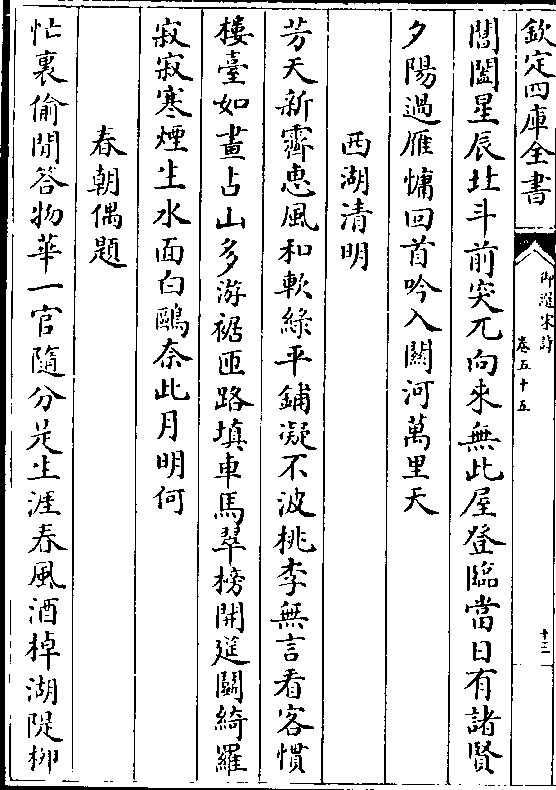 欽定四庫全書
御選宋詩
卷五十五
十三
閶闔星辰北斗前突兀向來無此屋登臨當日有諸賢
夕陽過雁慵回首吟入關河萬里天
西湖清明
芳天新霽惠風和軟綠平鋪凝不波桃李無言看客慣
樓臺如畫占山多游裾匝路填車馬翠榜開筵鬭綺羅
寂寂寒煙生水面白鷗奈此月明何
春朝偶題
忙裏偷閒答物華一官隨分是生涯春風酒棹湖隄柳